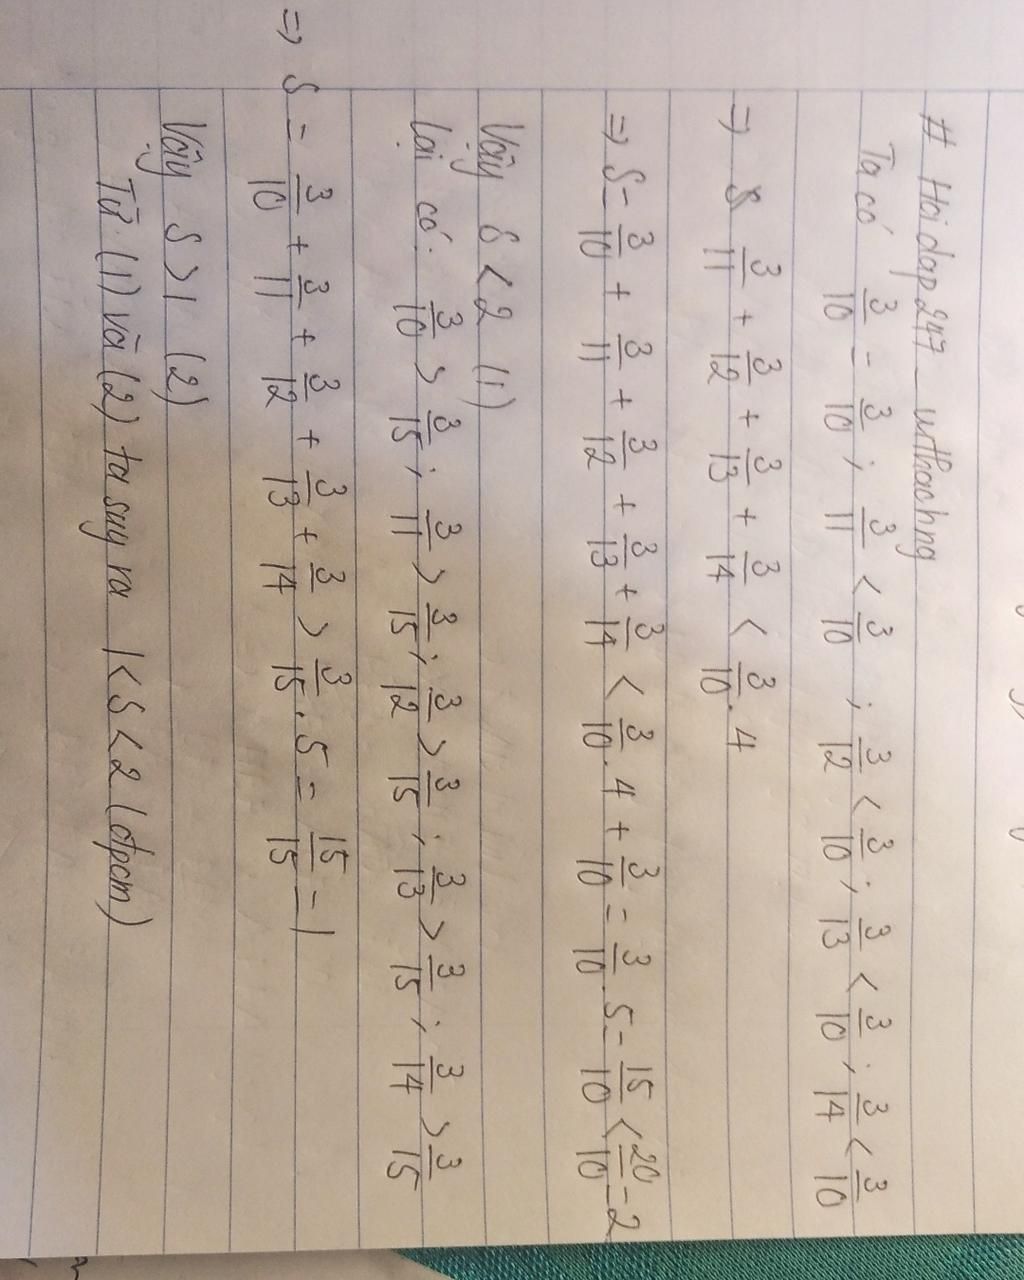 # Hoidap247_wthachng
Ta có 3/10 = 3/10 ; 3/11 < 3/10 ; 3/12 < 3/10 ; 3/13 < 3/10 ; 3/14 < 3/10
=> 3/11 + 3/12 + 3/13 + 3/14 < 3/10 . 4
=> S = 3/10 + 3/11 + 3/12 + 3/13 + 3/14 < 3/10 . 4 + 3/10 = 3/10 . 5 = 15/10 < 20/10 = 2
Vậy S < 2 (1)
Lại có: 3/10 > 3/15 ; 3/11 > 3/15 ; 3/12 > 3/15 ; 3/13 > 3/15 ; 3/14 > 3/15
=> S = 3/10 + 3/11 + 3/12 + 3/13 + 3/14 > 3/15 . 5 = 15/15 = 1
Vậy S > 1 (2)
Từ (1) và (2) ta suy ra 1 < S < 2 (đpcm)